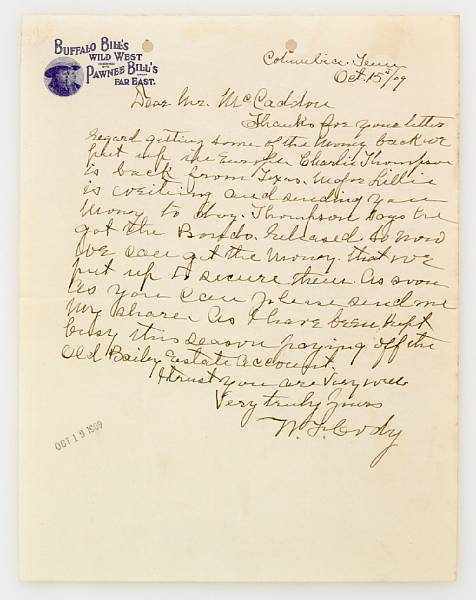 BUFFALO BILL'S
WILD WEST
COMBINED WITH
PAWNEE BILL'S
FAR EAST.
Columbia. Tenn
Oct. 15th/09
Dear Mr. McCaddon
Thanks for your letter
regard getting some of the money back we
put up in Europe. Charlie Thompson
is back from Texas. Major Lillie
is writing and sending you
money to day. Thompson says he
got the Bonds. released so now
we can get the money. that we
put up to secure them. As soon
as you can please send me
my share. As I have been kept
busy this season paying off the
Old Bailey Estate account.
I trust you are very well
Very truly yours
W. F. Cody
OCT 19 1909